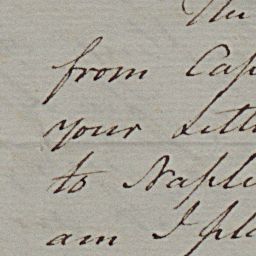 The
from Cap
your Lett
to Naple
am I pl